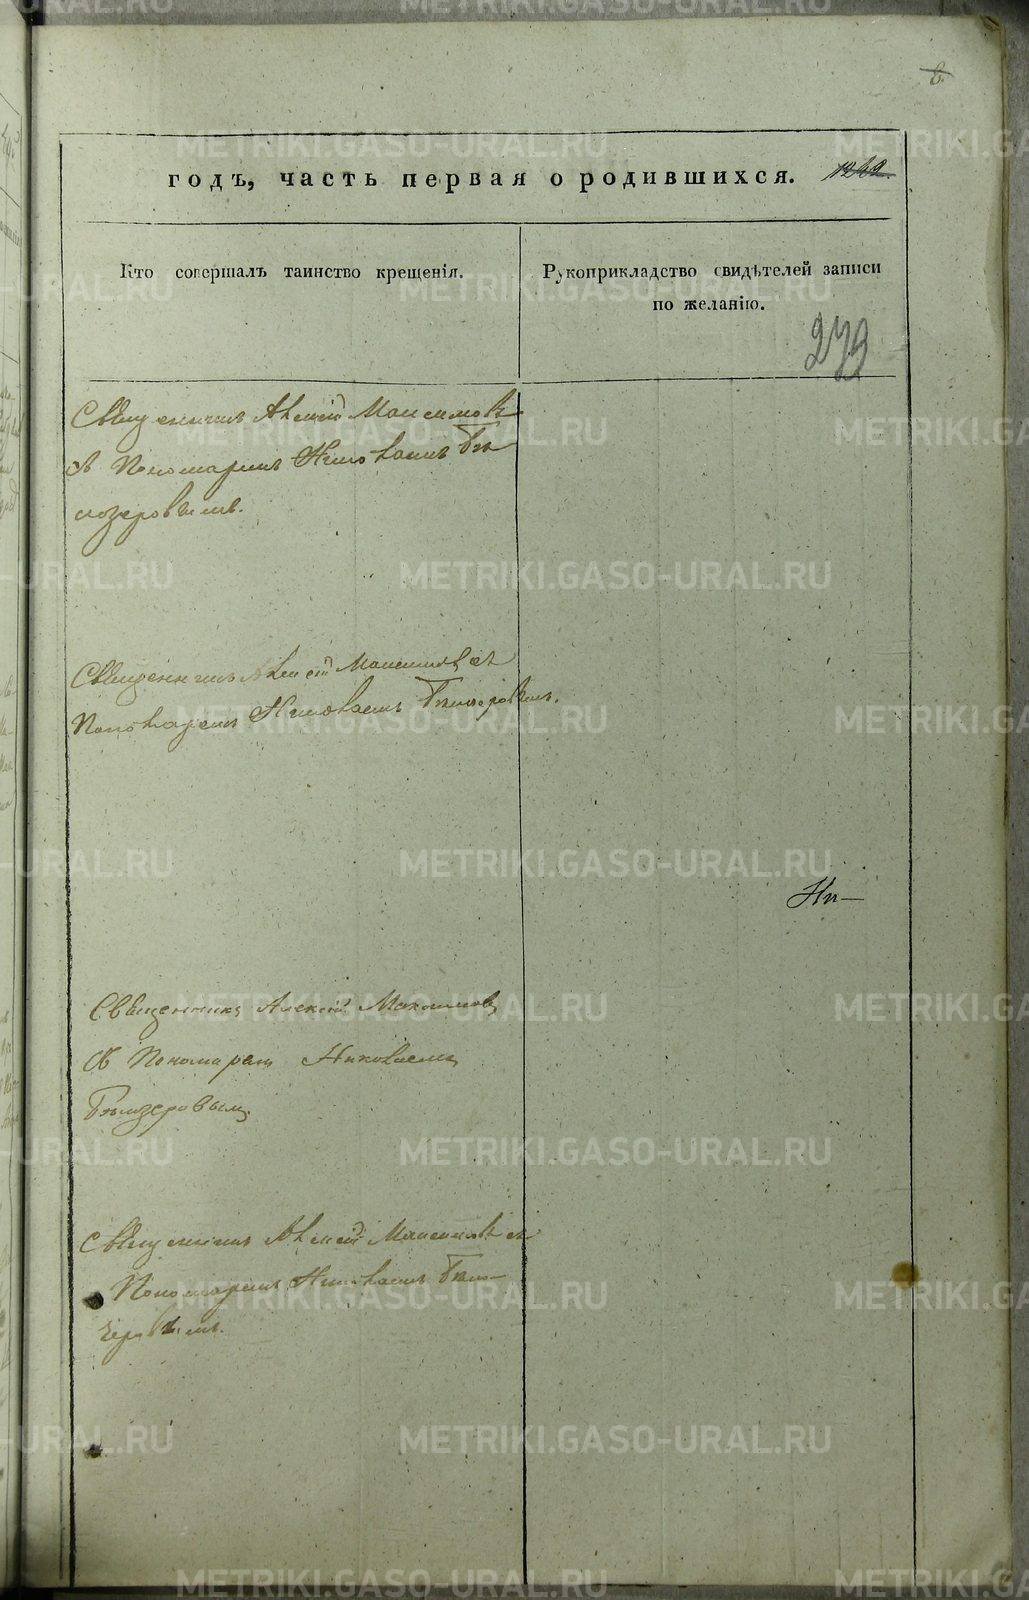 6
годъ, часть первая о родившихся.
Кто совершалъ таинство крещенія.
Рукоприкладство свидѣтелей записи
по желанію.
279
Священникъ Алексій Максимовъ
съ Пономаремъ Николаемъ Бѣ
лозеровымъ.
Священникъ Алексій Максимовъ съ
Пономаремъ Николаемъ Бѣлозеровымъ.
Ни—
Священникъ Алексій Максимовъ
съ Пономаремъ Николаемъ
Бѣлозеровымъ.
Священникъ Алексій Максимовъ съ
Пономаремъ Николаемъ Бѣло-
зеровымъ.
METRIKI.GASO-URAL.RU